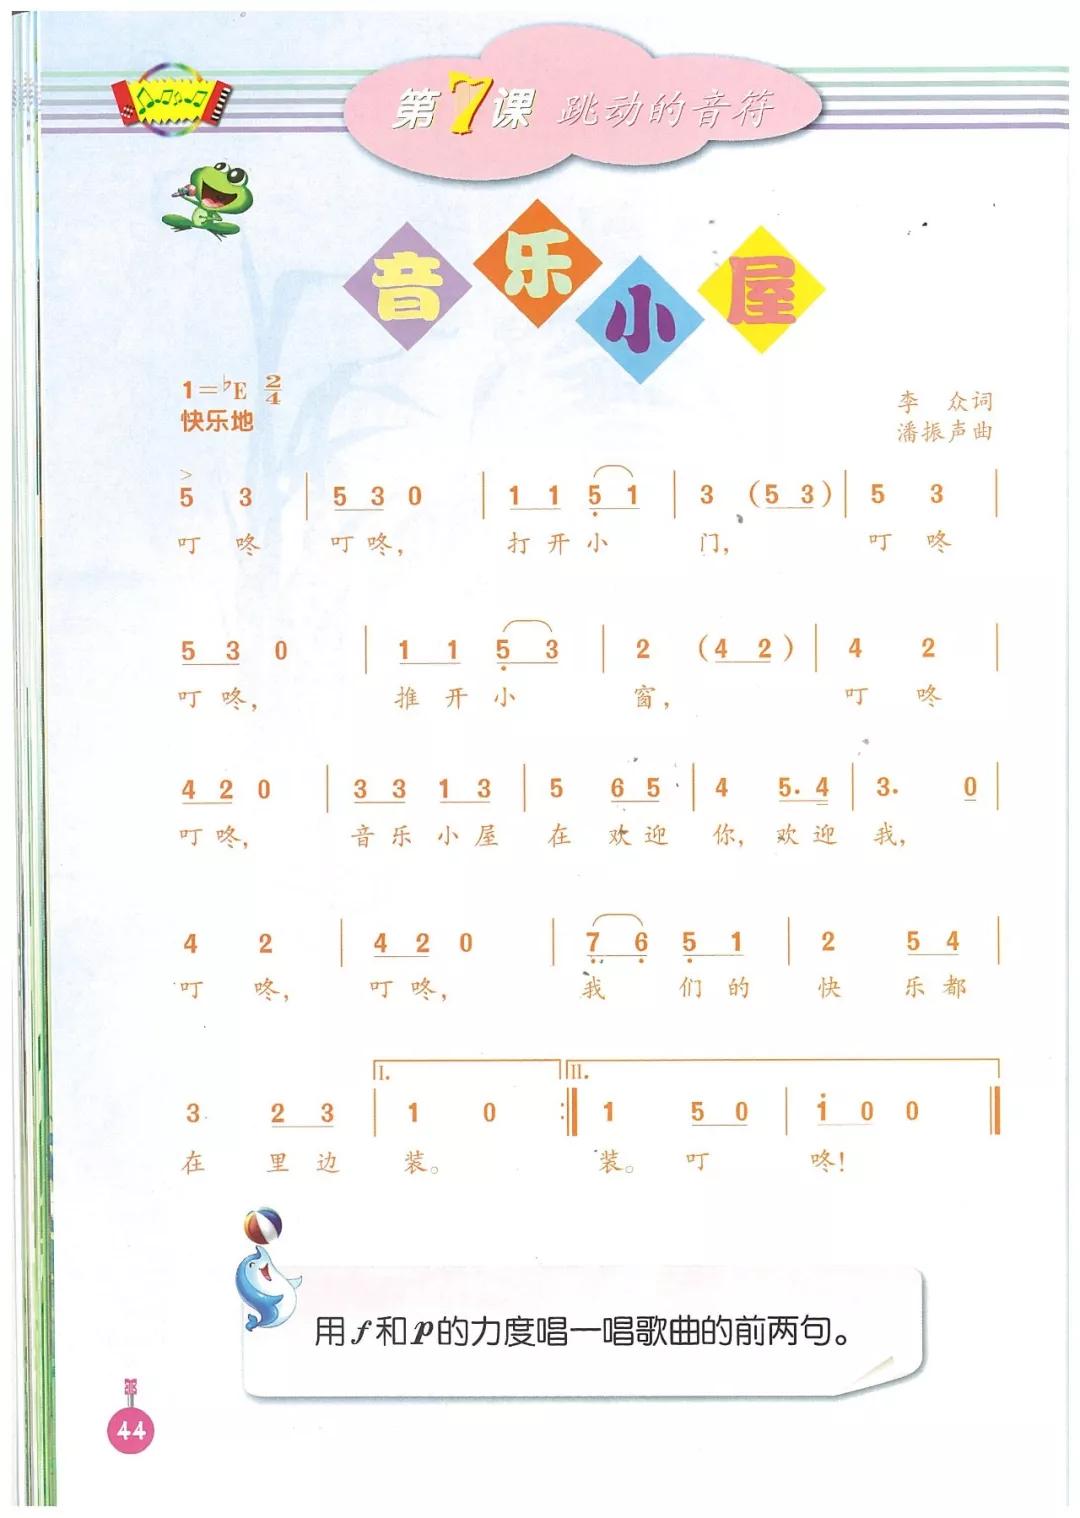 第7课 跳动的音符
音乐小屋
1=♭E 2/4
快乐地
李 众词
潘振声曲
>
5 3 | 5 3 0 | 1 1 5̣ 1 | 3 (5 3) | 5 3 |
叮 咚 叮咚, 打开小 门, 叮 咚
5 3 0 | 1 1 5̣ 3 | 2 (4 2) | 4 2 |
叮咚, 推开小 窗, 叮 咚
4 2 0 | 3 3 1 3 | 5 6 5 | 4 5. 4 | 3. 0 |
叮咚, 音乐小屋 在 欢迎 你, 欢迎 我,
4 2 | 4 2 0 | 7̣ 6̣ 5̣ 1 | 2 5 4 |
叮 咚, 叮咚, 我 们的 快 乐都
I. II.
3 2 3 | 1 0 :‖ 1 5 0 | 1̇ 0 0 ‖
在 里边 装。 装。 叮 咚!
用f和p的力度唱一唱歌曲的前两句。
44